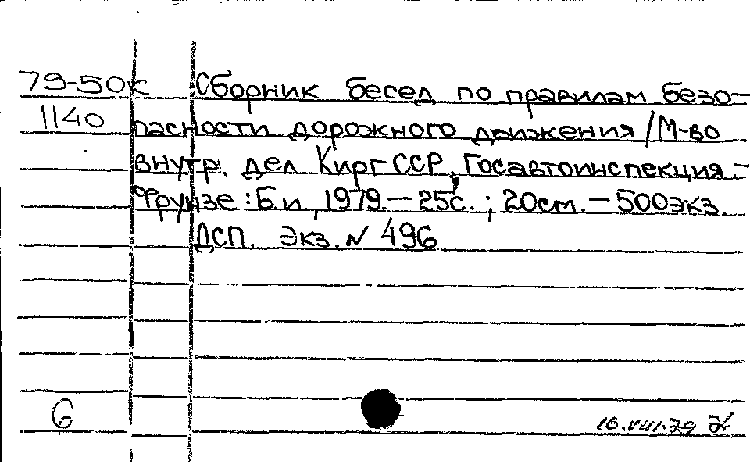 79-50к Сборник бесед по правилам безо-
1140 пасности дорожного движения / М-во
внутр. дел КиргССР, Госавтоинспекция.-
Фрунзе: Б.и, 1979.- 25с.; 20см.- 500экз.
ДСП. Экз. № 496
6 16.VIII.79